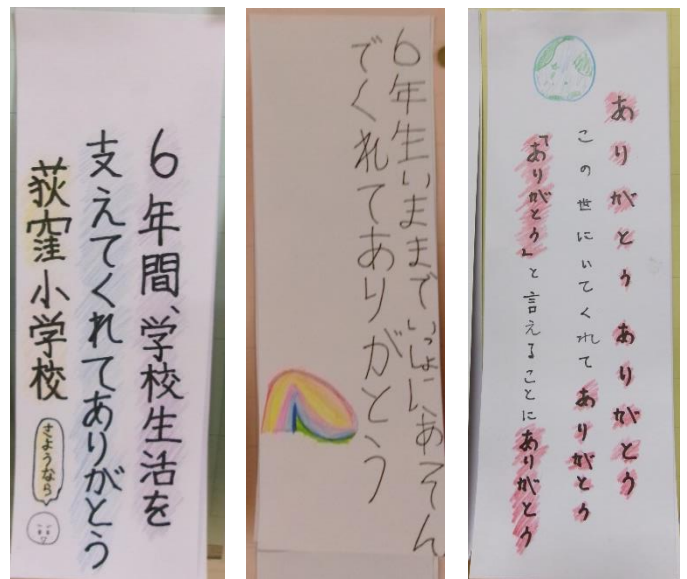 6年間、学校生活を
支えてくれてありがとう
荻窪小学校
さようなら
6年生いままでいっしょにあそん
でくれてありがとう
ありがとう ありがとう
この世にいてくれてありがとう
「ありがとう」と言えることにありがとう